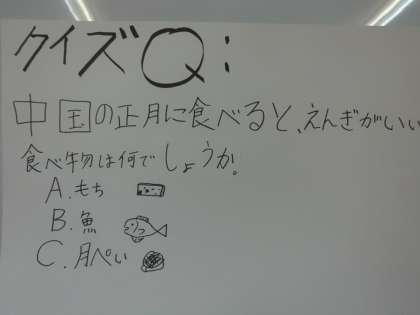 クイズQ:
中国の正月に食べると、えんぎがいい
食べ物は何でしょうか。
A.もち
B.魚
C.月ぺい